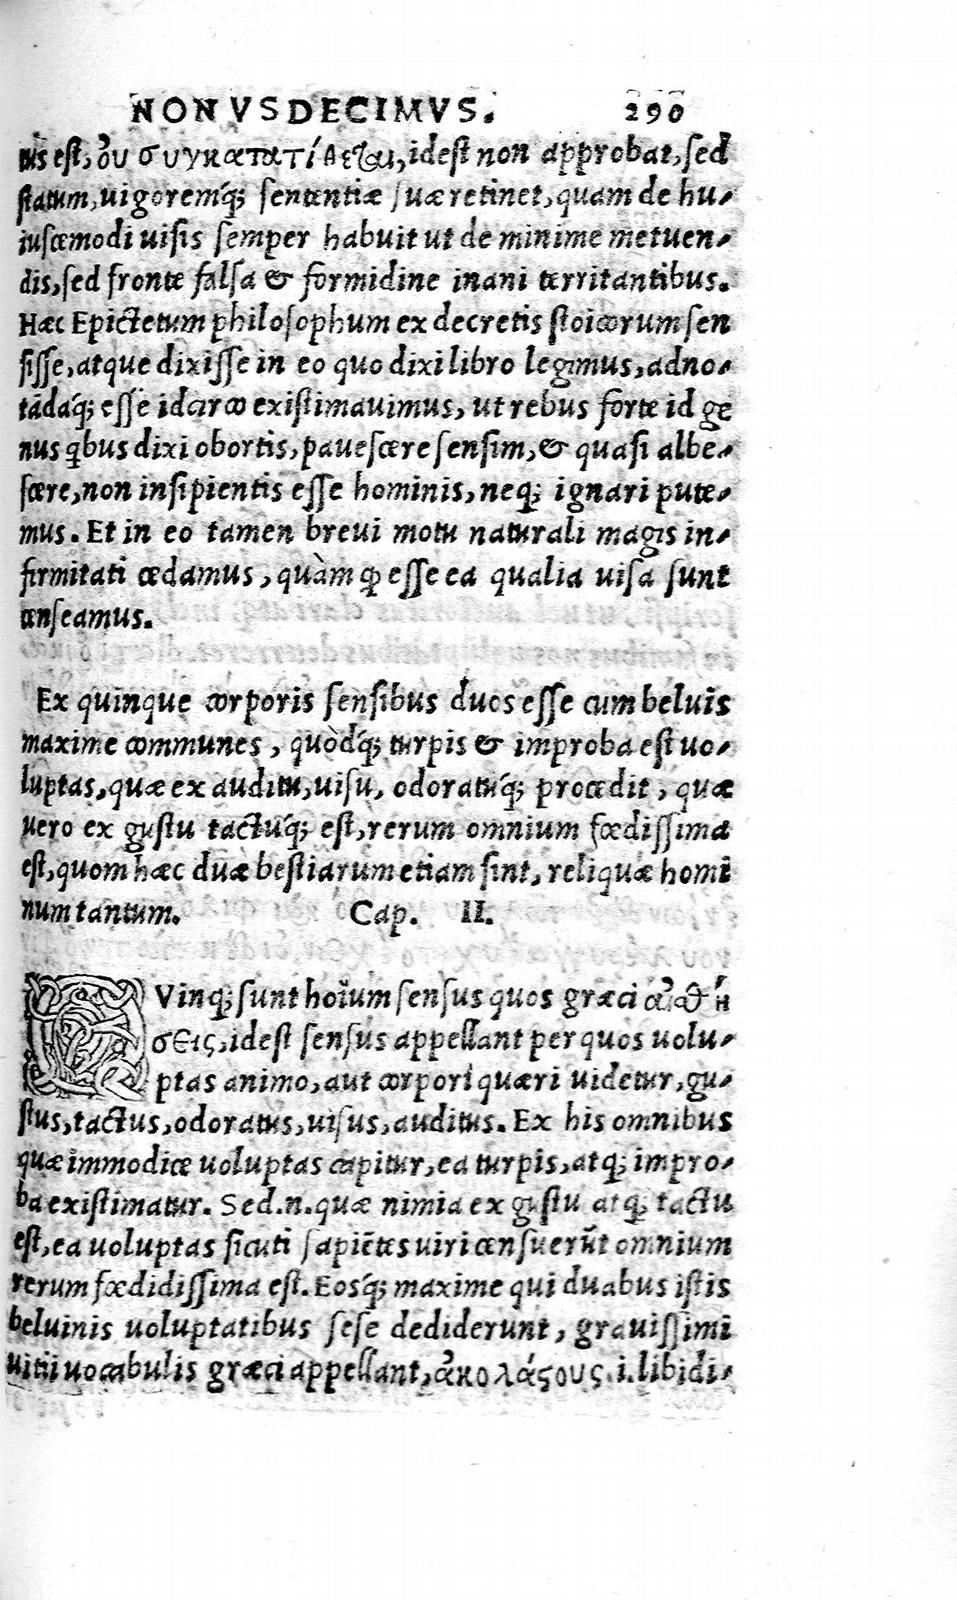 NONVSDECIMVS. 290
tus est, οὐ συγκατατίθεται, idest non approbat, sed
statum, uigoremq́; sententiæ suæ retinet, quam de hu-
iuscemodi uisis semper habuit ut de minime metuen-
dis, sed fronte falsa & formidine inani territantibus.
Hæc Epictetum philosophum ex decretis stoicorum sen
sisse, atque dixisse in eo quo dixi libro legimus, adno-
tādaq́; esse idcirco existimauimus, ut rebus forte id ge
nus qbus dixi obortis, pauescere sensim, & quasi albe-
scere, non insipientis esse hominis, neq; ignari pute-
mus. Et in eo tamen breui motu naturali magis in-
firmitati cedamus, quàm ꝙ esse ea qualia uisa sunt
censeamus.
Ex quinque corporis sensibus duos esse cum beluis
maxime communes, quòdq́; turpis & improba est uo-
luptas, quæ ex auditu, uisu, odoratuq́; procedit, quæ
uero ex gustu tactuq́; est, rerum omnium fœdissima
est, quom hæc duæ bestiarum etiam sint, reliquæ homī
num tantum. Cap. II.
QVinq; sunt hoīum sensus quos græci αἰσθή
σεις, idest sensus appellant per quos uolu-
ptas animo, aut corpori quæri uidetur, gu-
stus, tactus, odoratus, uisus, auditus. Ex his omnibus
quæ immodice uoluptas capitur, ea turpis, atq; impro-
ba existimatur. Sed.n.quæ nimia ex gustu atq; tactu
est, ea uoluptas sicuti sapiētes uiri censuerūt omnium
rerum fœdidissima est. Eosq́; maxime qui duabus istis
beluinis uoluptatibus sese dediderunt, grauissimi
uitii uocabulis græci appellant, ἀκολάςους .i. libidi-